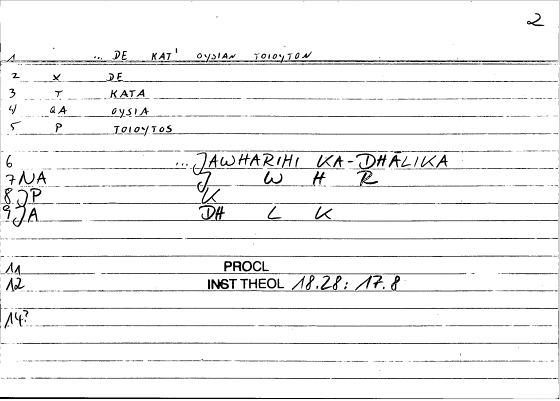 2
1 ... DE KAT' OYSIAN TOIOYTON
2 X DE
3 T KATA
4 QA OYSIA
5 P TOIOYTOS
6 ...JAWHARIHI KA-DHĀLIKA
7 NA J W H R
8 JP K
9 JA DH L K
11 PROCL
12 INST THEOL 18.28: 17.8
14?